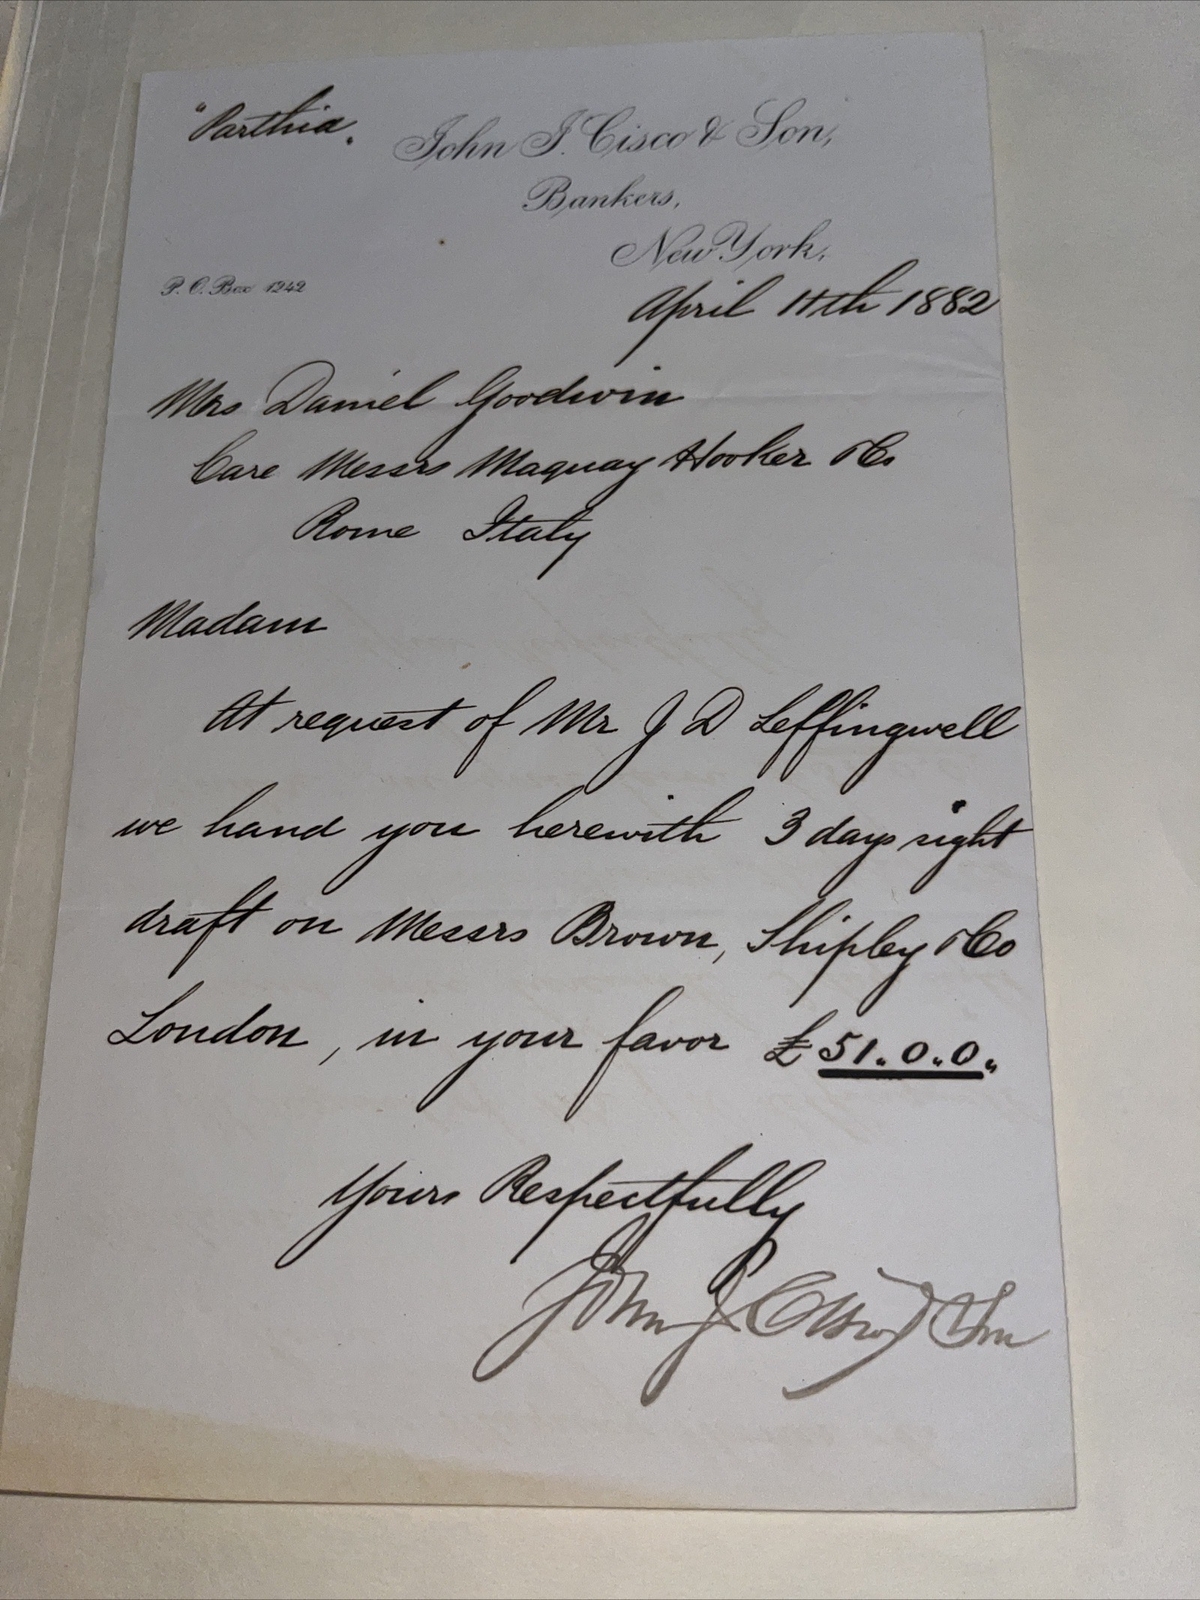 "Parthia.
John J. Cisco & Son,
Bankers,
New York,
P. O. Box 1242
April 11th 1882
Mrs Daniel Goodwin
Care Messrs Maquay Hooker & Co
Rome Italy
Madam
At request of Mr J D Leffingwell
we hand you herewith 3 days sight
draft on Messrs Brown, Shipley & Co
London, in your favor £51.0.0.
Yours Respectfully
John J. Cisco & Son